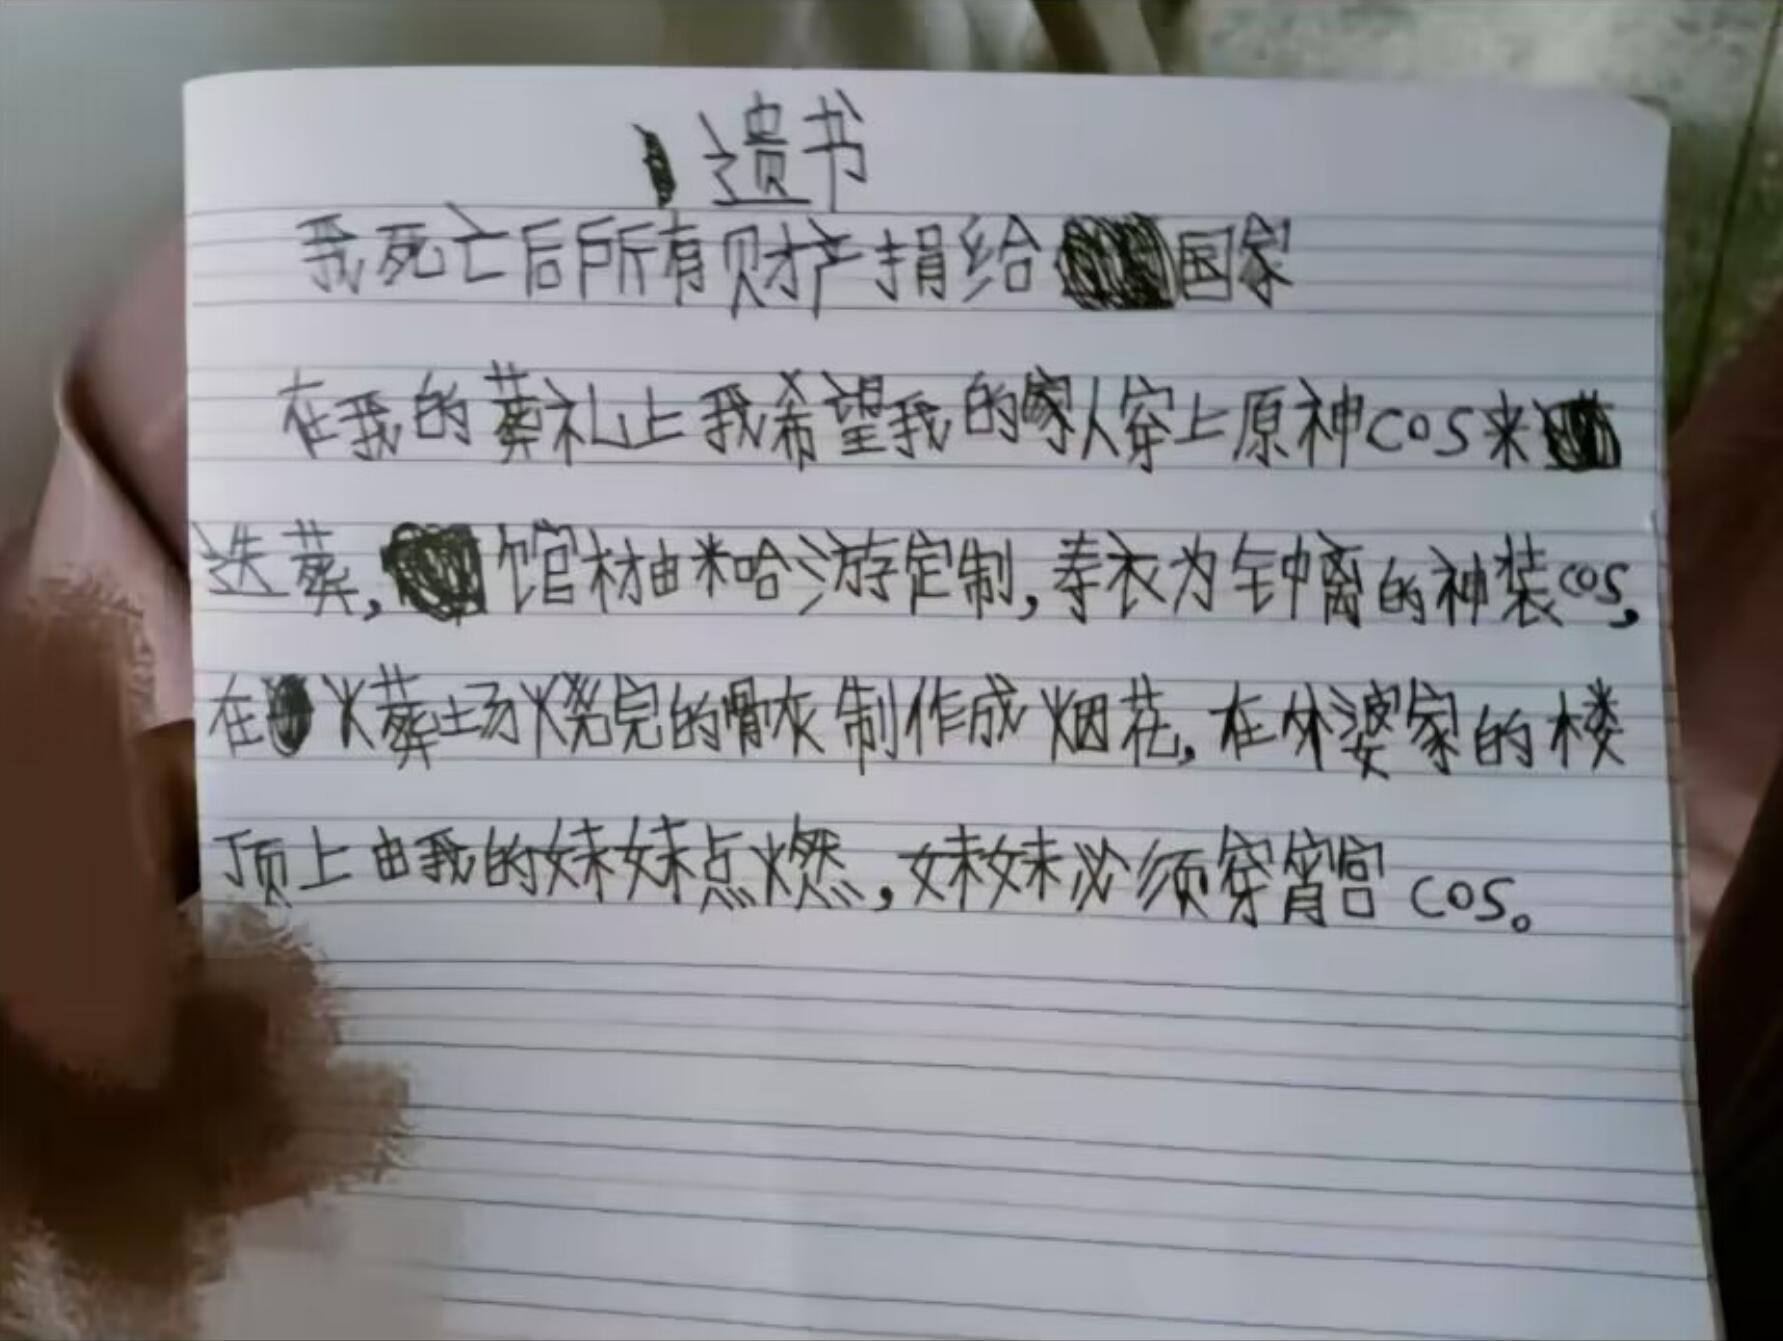 遗书
我死亡后所有财产捐给国家
在我的葬礼上我希望我的家人穿上原神cos来
送葬,馆材由米哈游定制,寿衣为钟离的神装cos,
在火葬场火烧完的骨灰制作成烟花,在外婆家的楼
顶上由我的妹妹点燃,妹妹必须穿宵宫cos。